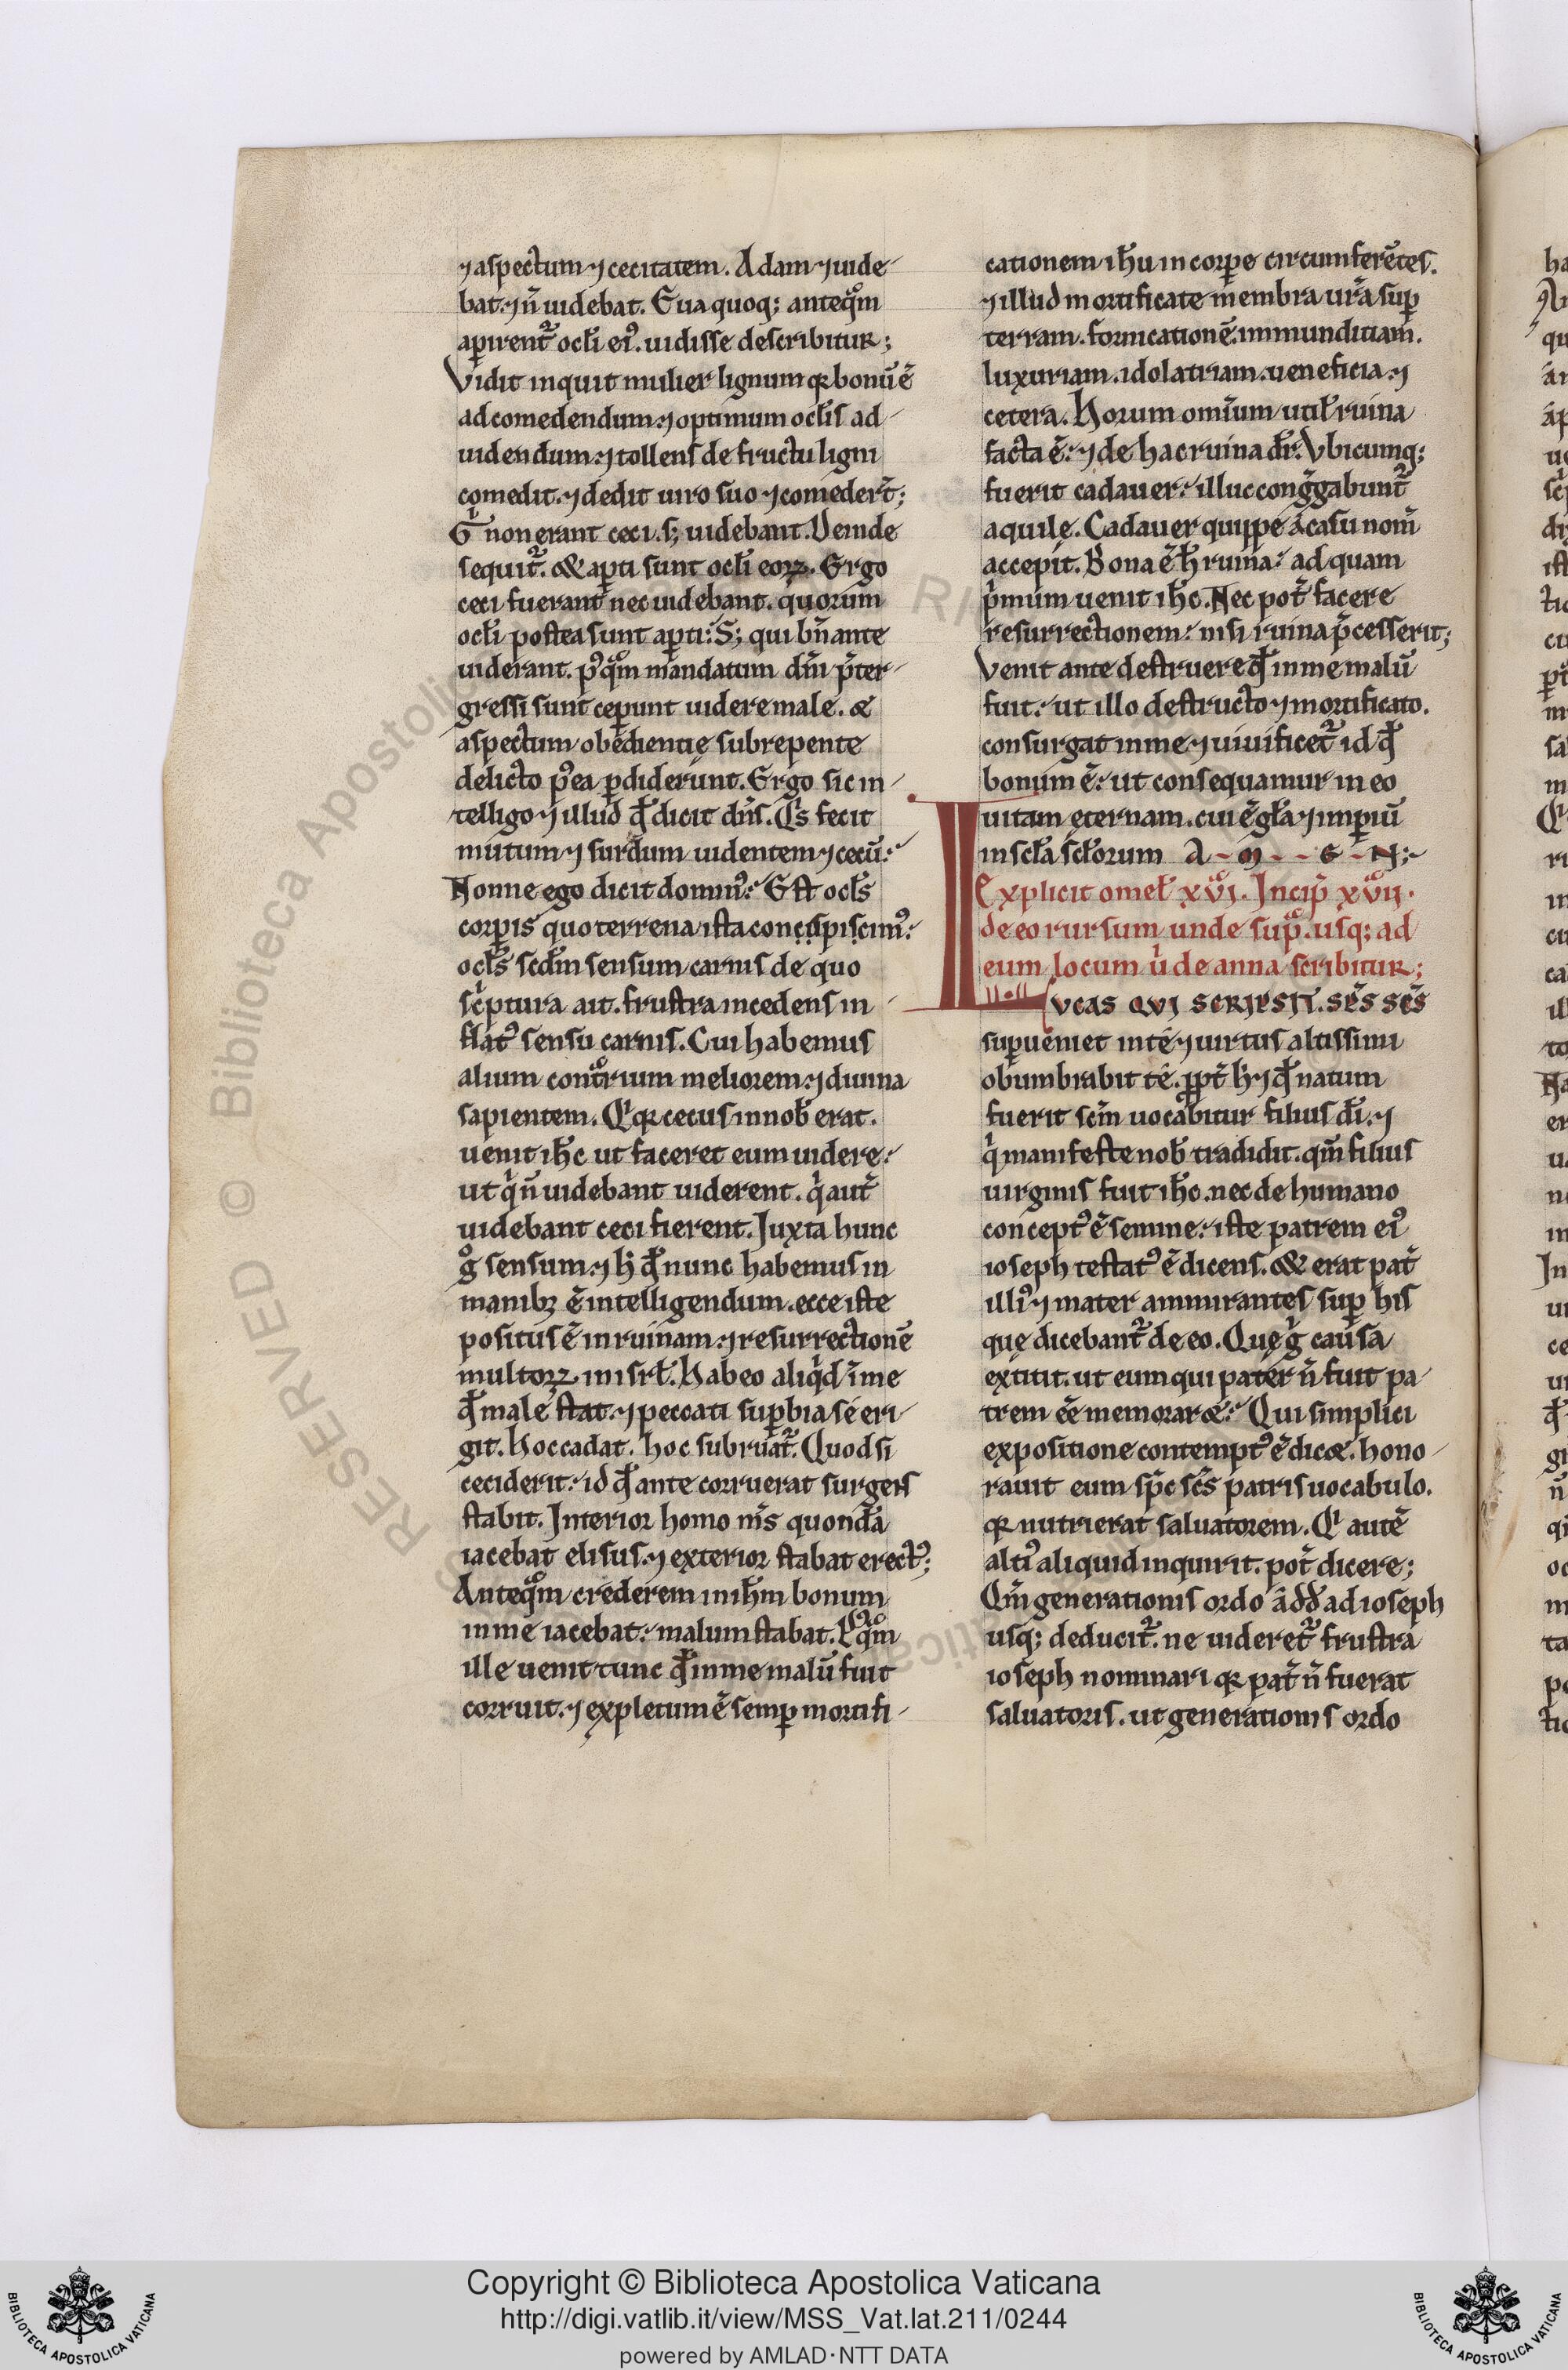 ⁊ aspectum ⁊ cecitatem. Adam ⁊ uide-
bat. ⁊ n̄ uidebat. Eua quoq; anteqͦm
aꝑirent᷑ ocl̄i eiꝰ. uidisse describitur;
Vidit inquit mulier lignum qꝛ bonū ē
ad comedendum. ⁊ optimum ocl̄is ad-
uidendum. ⁊ tollens de fructu ligni
comedit. ⁊ dedit uiro suo ⁊ comeder̄t;
Gͥ non erant ceci. s; uidebant. Deinde
sequit᷑. & aꝑti sunt ocl̄i eoꝝ. Ergo
ceci fuerant nec uidebant. quorum
ocl̄i postea sunt aꝑti: S; qui bn̄ ante
uiderant. pꝰqͦm mandatum dn̄i p̄ter-
gressi sunt ceꝑunt uidere male. &
aspectum obedientię subrepente
delicto pꝰea ꝑdiderunt. Ergo sic in-
telligo ⁊ illud qđ dicit dn̄s. Qͥs fecit
mutum ⁊ surdum uidentem ⁊ cecū.
Nonne ego dicit dominꝰ. Est ocl̄s
corꝑis quo terrena ista concupiscimꝰ.
ocl̄s scd̄m sensum carnis de quo
scͥptura ait. frustra incedens in-
flatꝰ sensu carnis. Cui habemus
alium contͦrium meliorem. ⁊ diuina
sapientem. Qͥ qꝛ cecus in nob̄ erat.
uenit ih̄c ut faceret eum uidere.
ut qͥ n̄ uidebant uiderent. qͥ aut̄
uidebant ceci fierent. Juxta hunc
gͦ sensum ⁊ hͥ qđ nunc habemus in
manibꝫ ē intelligendum. ecce iste
positus ē in ruinam. ⁊ resurrectionē
multoꝝ in isrł. Habeo aliqͥd ī me
qđ male stat. ⁊ peccati suꝑbia se eri-
git. hoc cadat. hoc subruat᷑. Quod si
ceciderit. id qđ ante corruerat surgens
stabit. Interior homo nr̄s quondā
iacebat elisus. ⁊ exterior stabat erectꝰ;
Anteqͦm crederem in ih̄m bonum
in me iacebat. malum stabat. Pꝰqͦm
ille uenit tunc qđ in me malū fuit
corruit. ⁊ expletum ē semꝑ mortifi-
cationem ih̄u in corꝑe circumferētes.
⁊ illud mortificate membra ur̄a suꝑ
terram. fornicationē. immunditiam.
luxuriam. idolatriam. ueneficia. ⁊
cetera. Horum omīum utił ruina
facta ē. ⁊ de hac ruina dr̄. Vbicumq;
fuerit cadauer. illuc cong̅gabunt᷑
aquilę. Cadauer quippe a casu nom̄
accepit. Bona ē hͥ ruina. ad quam
pͥmum uenit ih̄c. Nec pot̄ facere
resurrectionem. nisi ruina p̄cesserit;
Venit ante destruere qđ in me malū
fuit. ut illo destructo ⁊ mortificato.
consurgat in me ⁊ uiuificet᷑ id qđ
bonum ē. ut consequamur in eo
uitam ęternam. cui ē gła ⁊ imꝑiū
in scła scłorum A - M - - E - N;
Explicit omeł xvͦi. Incip̄ xvͦii.
de eo rursum unde supͦ. usq; ad
eum locum uͥ de anna scribitur;
LVCAS QVI SCRIPSIT. SP̄S SC̄S
suꝑueniet in te ⁊ uirtus altissimi
obumbrabit te. ꝓpt̄ hͥ ⁊ qđ natum
fuerit scm̄ uocabitur filius dī. ⁊
qͥ manifeste nob̄ tradidit. qm̄ filius
uirginis fuit ih̄c. nec de humano
conceptꝰ ē semine. iste patrem eiꝰ
ioseph testatꝰ ē dicens. & erat pat̄
illiꝰ ⁊ mater ammirantes suꝑ his
quę dicebant᷑ de eo. Quę gͥ causa
extitit. ut eum qui pater n̄ fuit pa-
trem eē memorar&. Qui simplici
expositione contemptꝰ ē dic&. hono-
rauit eum sp̄c sc̄s patris uocabulo.
qꝛ nutrierat saluatorem. Qͥ autē
altiꝰ aliquid inquirit. pot̄ dicere;
Qm̄ generationis ordo a dd̄ ad ioseph
usq; deducit᷑. ne uideret᷑ frustra
ioseph nominari qꝛ pat̄ n̄ fuerat
saluatoris. ut generationis ordo
Copyright © Biblioteca Apostolica Vaticana
http://digi.vatlib.it/view/MSS_Vat.lat.211/0244
powered by AMLAD·NTT DATA